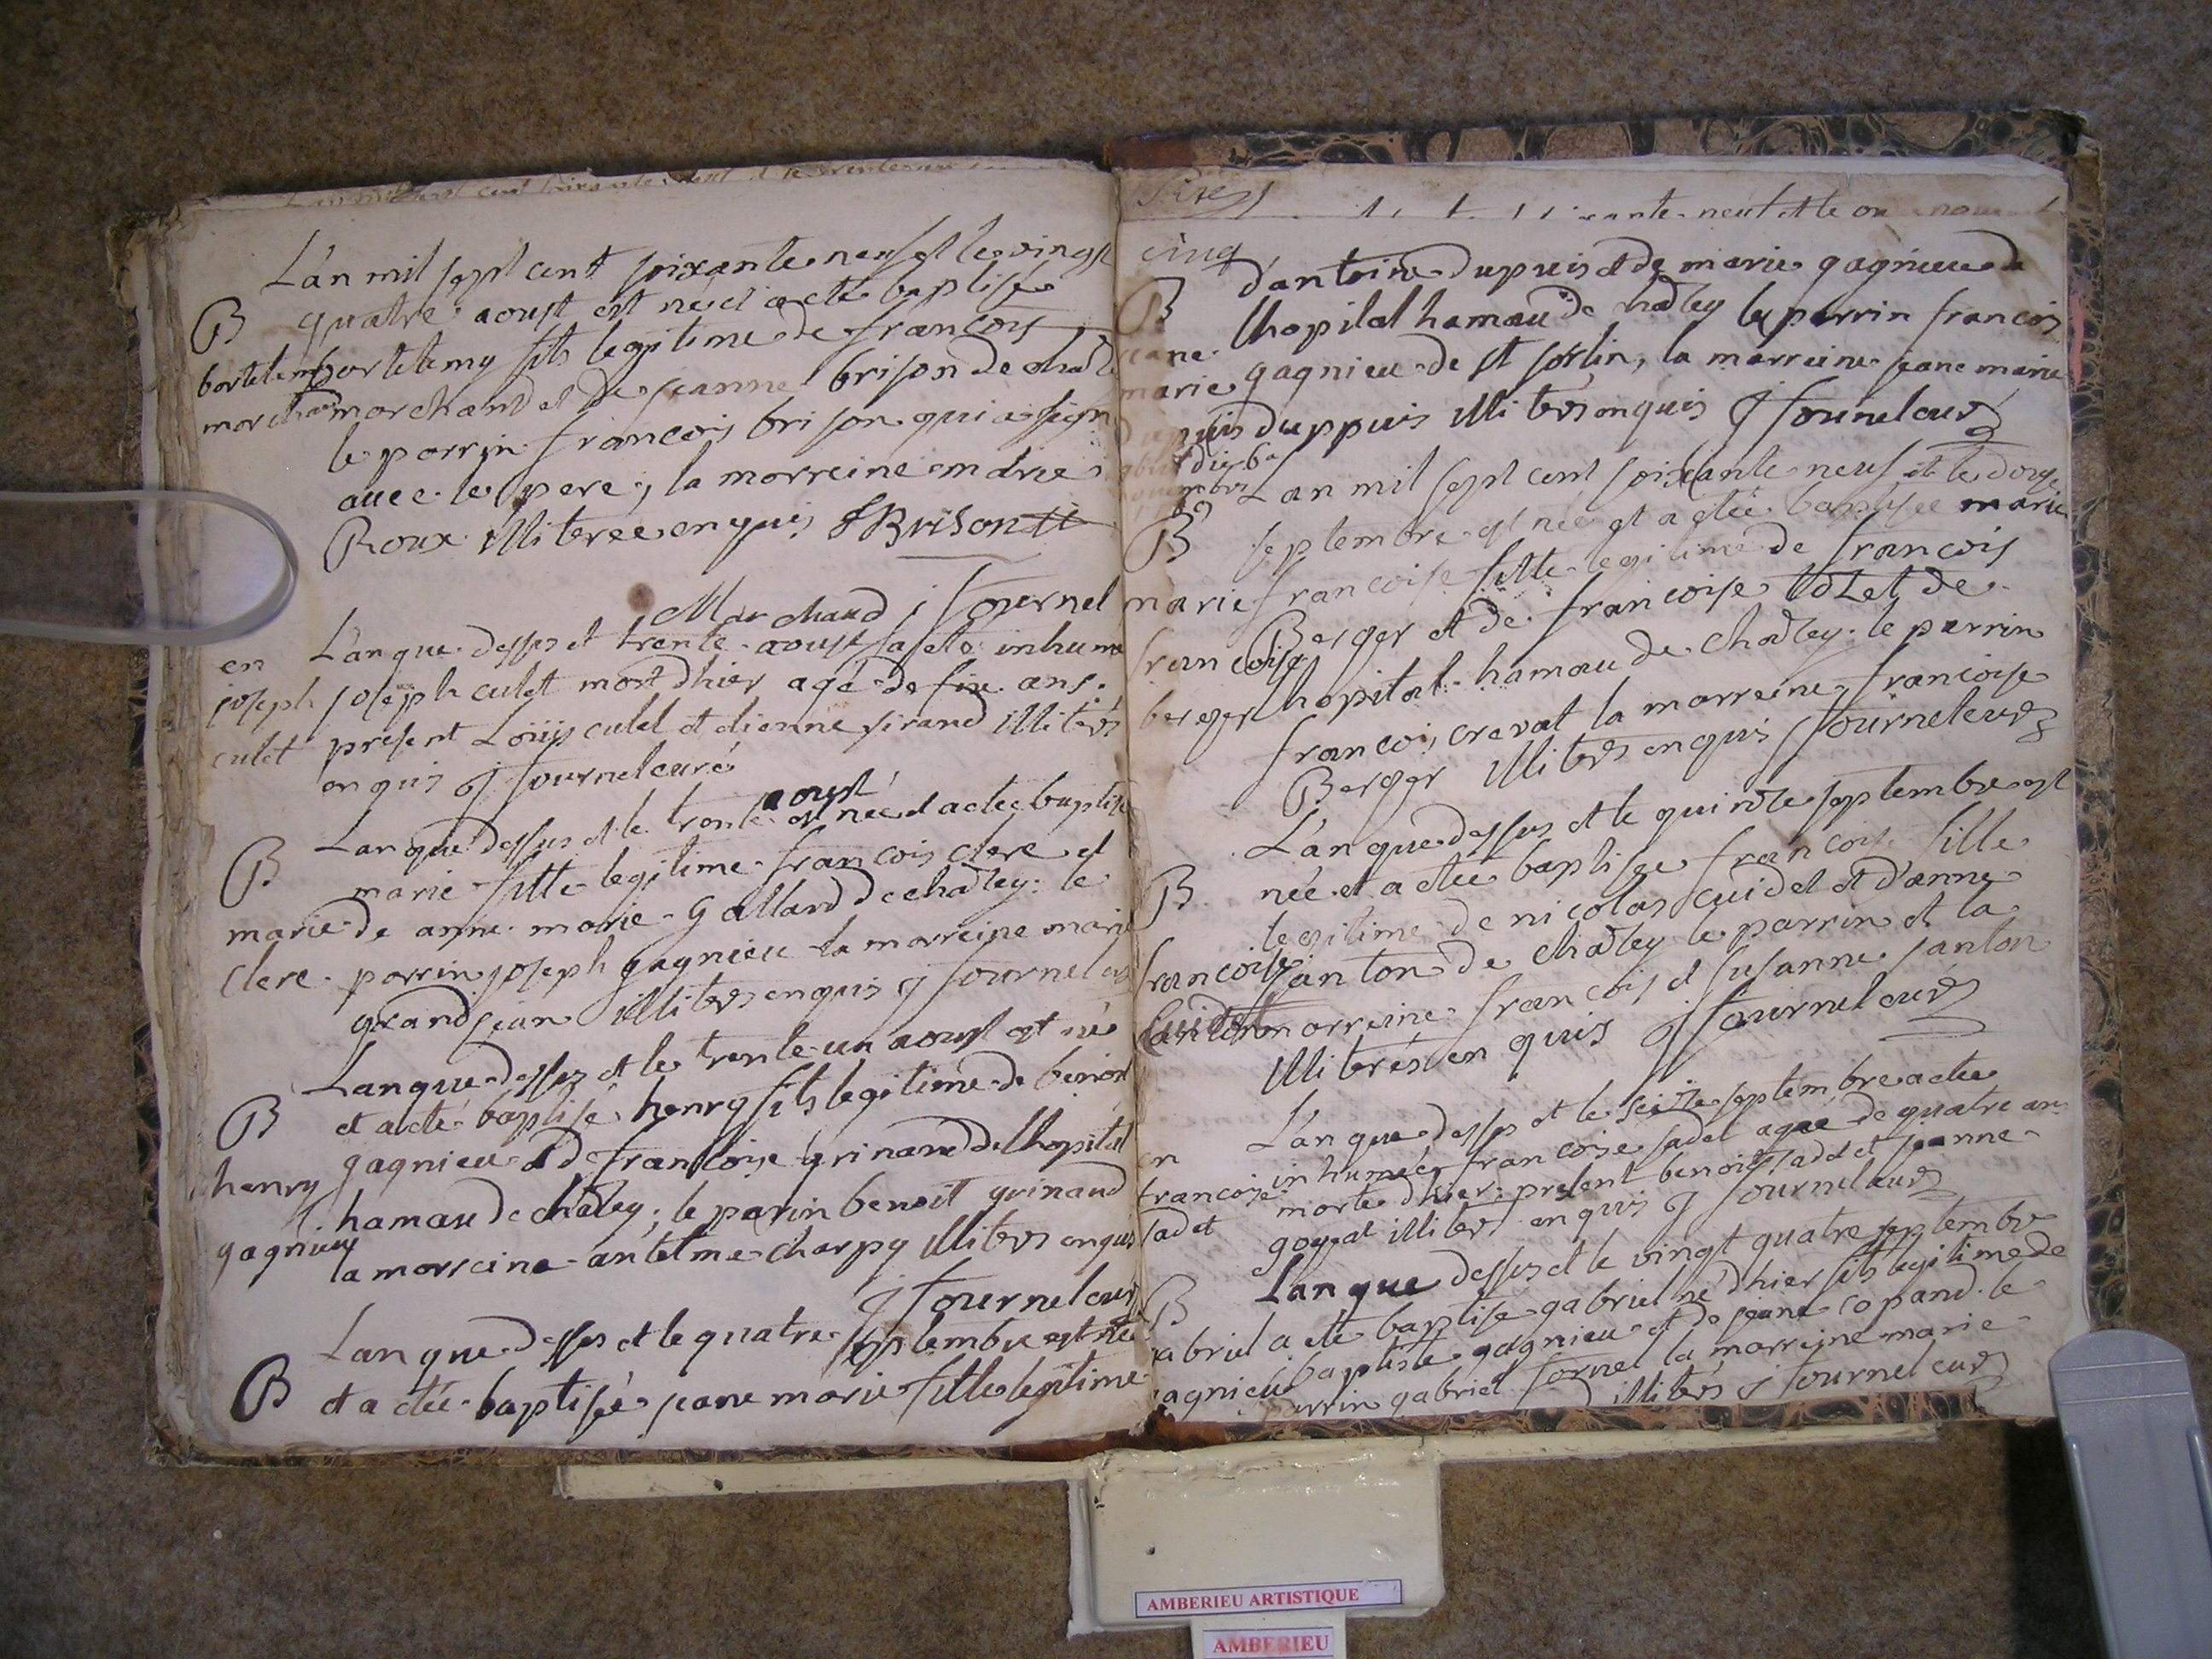 L'an mil sept cent soixante neuf et le vingt
B quatre aoust est né et a eté baptisé
bortelemy bortelemy fils legitime de françois
marchand marchand et de jeanne brison de chatley
le parrin françois brison qui a signé
avec le pere, la marreine andrie
Roux illiteree enquis F Brison
Marchand j fournel
en L'an que dessus et trente aoust fa eté inhumé
joseph joseph culet mort d'hier agé de six ans.
culet present Loüis culet etienne sirand illiterés
enquis j fournel curé
aoust
L'an que dessus et le trente est née et a eté baptisée
B marie fille legitime françois clere et
marie de anne marie gallard de chatley: le
Clere. parrin joseph gagnieu la marreine marie
grandjean illiterés enquis j fournel curé
L'an que dessus et le trente un aoust est né
B et a eté baptisé henry fils legitime de benoit
henry gagnieu et de françoise grinand de lhopital
hamau de chatley; le parin benoit grinand
gagnieu la marreine antelme charpy illiterés enquis
j fournel curé
L'an que dessus et le quatre septembre est née
B et a eté baptisée jeane marie fille legitime
cinq
d'antoine dupuis et de marie gagnieu de
B lhopital hamau de chatley le parrin françois
jeane gagnieu de st sorlin, la marreine jeane marie
marie
dupuis duppuis illiterés enquis j fournel curé
L'an mil sept cent soixante neuf et le douze
B septembre est née et a etée baptisée marie
marie françoise fille legitime de françois
françoise Berger et de françoise lozet de
berger lhopital hamau de chatley: le parrin
françois cravat la marreine françoise
Berger illiterés enquis j fournel curé
L'an que dessus et le quinze septembre est
B née et a etée baptisée françoise fille
legitime de nicolas cuidet et d'anne
françoise janton de chatley le parrin et la
Cuidet marreine françois et susanne janton
illiterés enquis j fournel curé
L'an que dessus et le seize septembre a etée
en inhumée françoise sadet agée de quatre ans
françoise morte d'hier: present benoit sadet et jeanne
sadet goyat illiterés enquis j fournel curé
L'an que dessus et le vingt quatre septembre
B
gabriel a eté baptisé gabriel né d'hier fils legitime de
gagnieu baptiste gagnieu et de jeane copand. le
parrin gabriel fornel la marreine marie
illiterés j fournel curé
AMBERIEU ARTISTIQUE
AMBERIEU